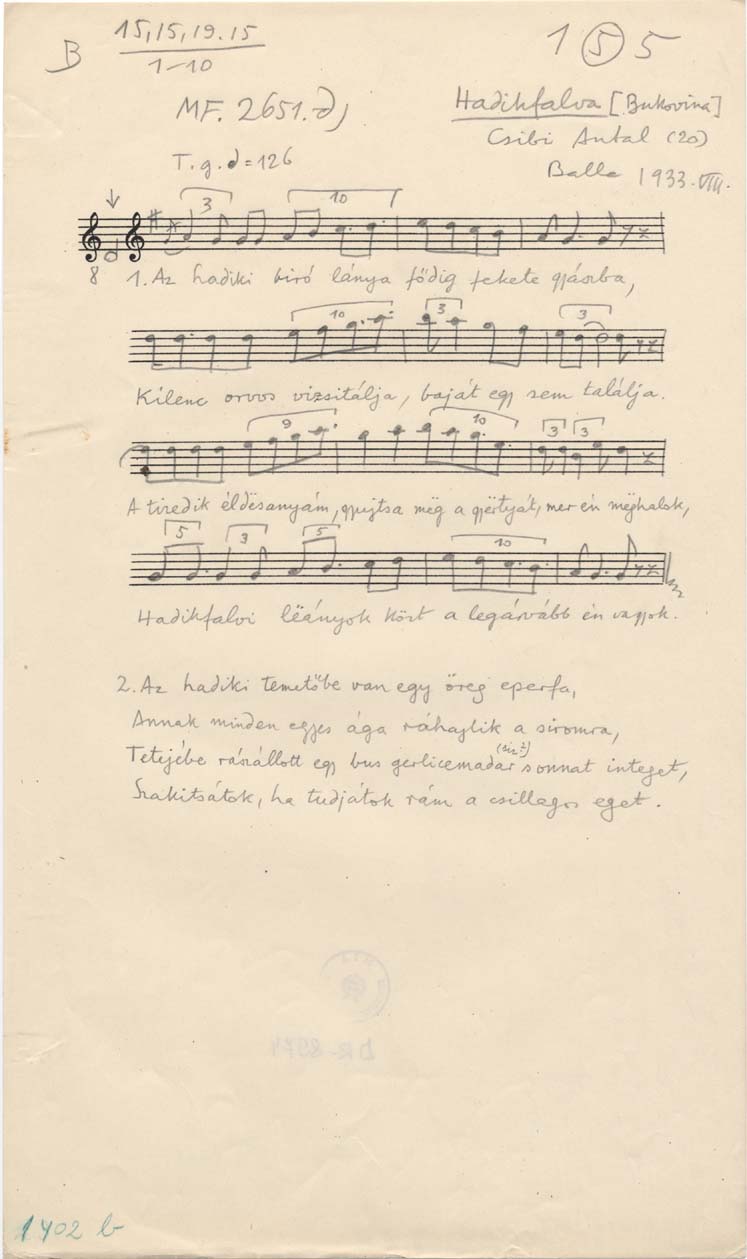 B
15,15,19.15
1-10
1 5 5
MF. 2651.d)
Hadikfalva [Bukovina]
Csibi Antal (20)
Balla 1933.VIII.
T.g. =126
3 10
8
1. Az hadiki biró lánya fődig fekete gyászba,
10 3 3
Kilenc orvos vizsitálja, baját egy sem találja.
9 10 3 3
A tiredik éldësanyám, gyujtsa mëg a gyërtyát, mer én mëghalok,
5 3 5 10
Hadikfalvi lëányok közt a legárvább én vagyok.
2. Az hadiki temetőbe van egy öreg eperfa,
Annak minden egyes ága ráhajlik a siromra,
Tetejébe rászállott egy bus gerlicemadár sonnat integet,
Szakitsátok, ha tudjátok rám a csillagos eget.
BR-8974
1402 b